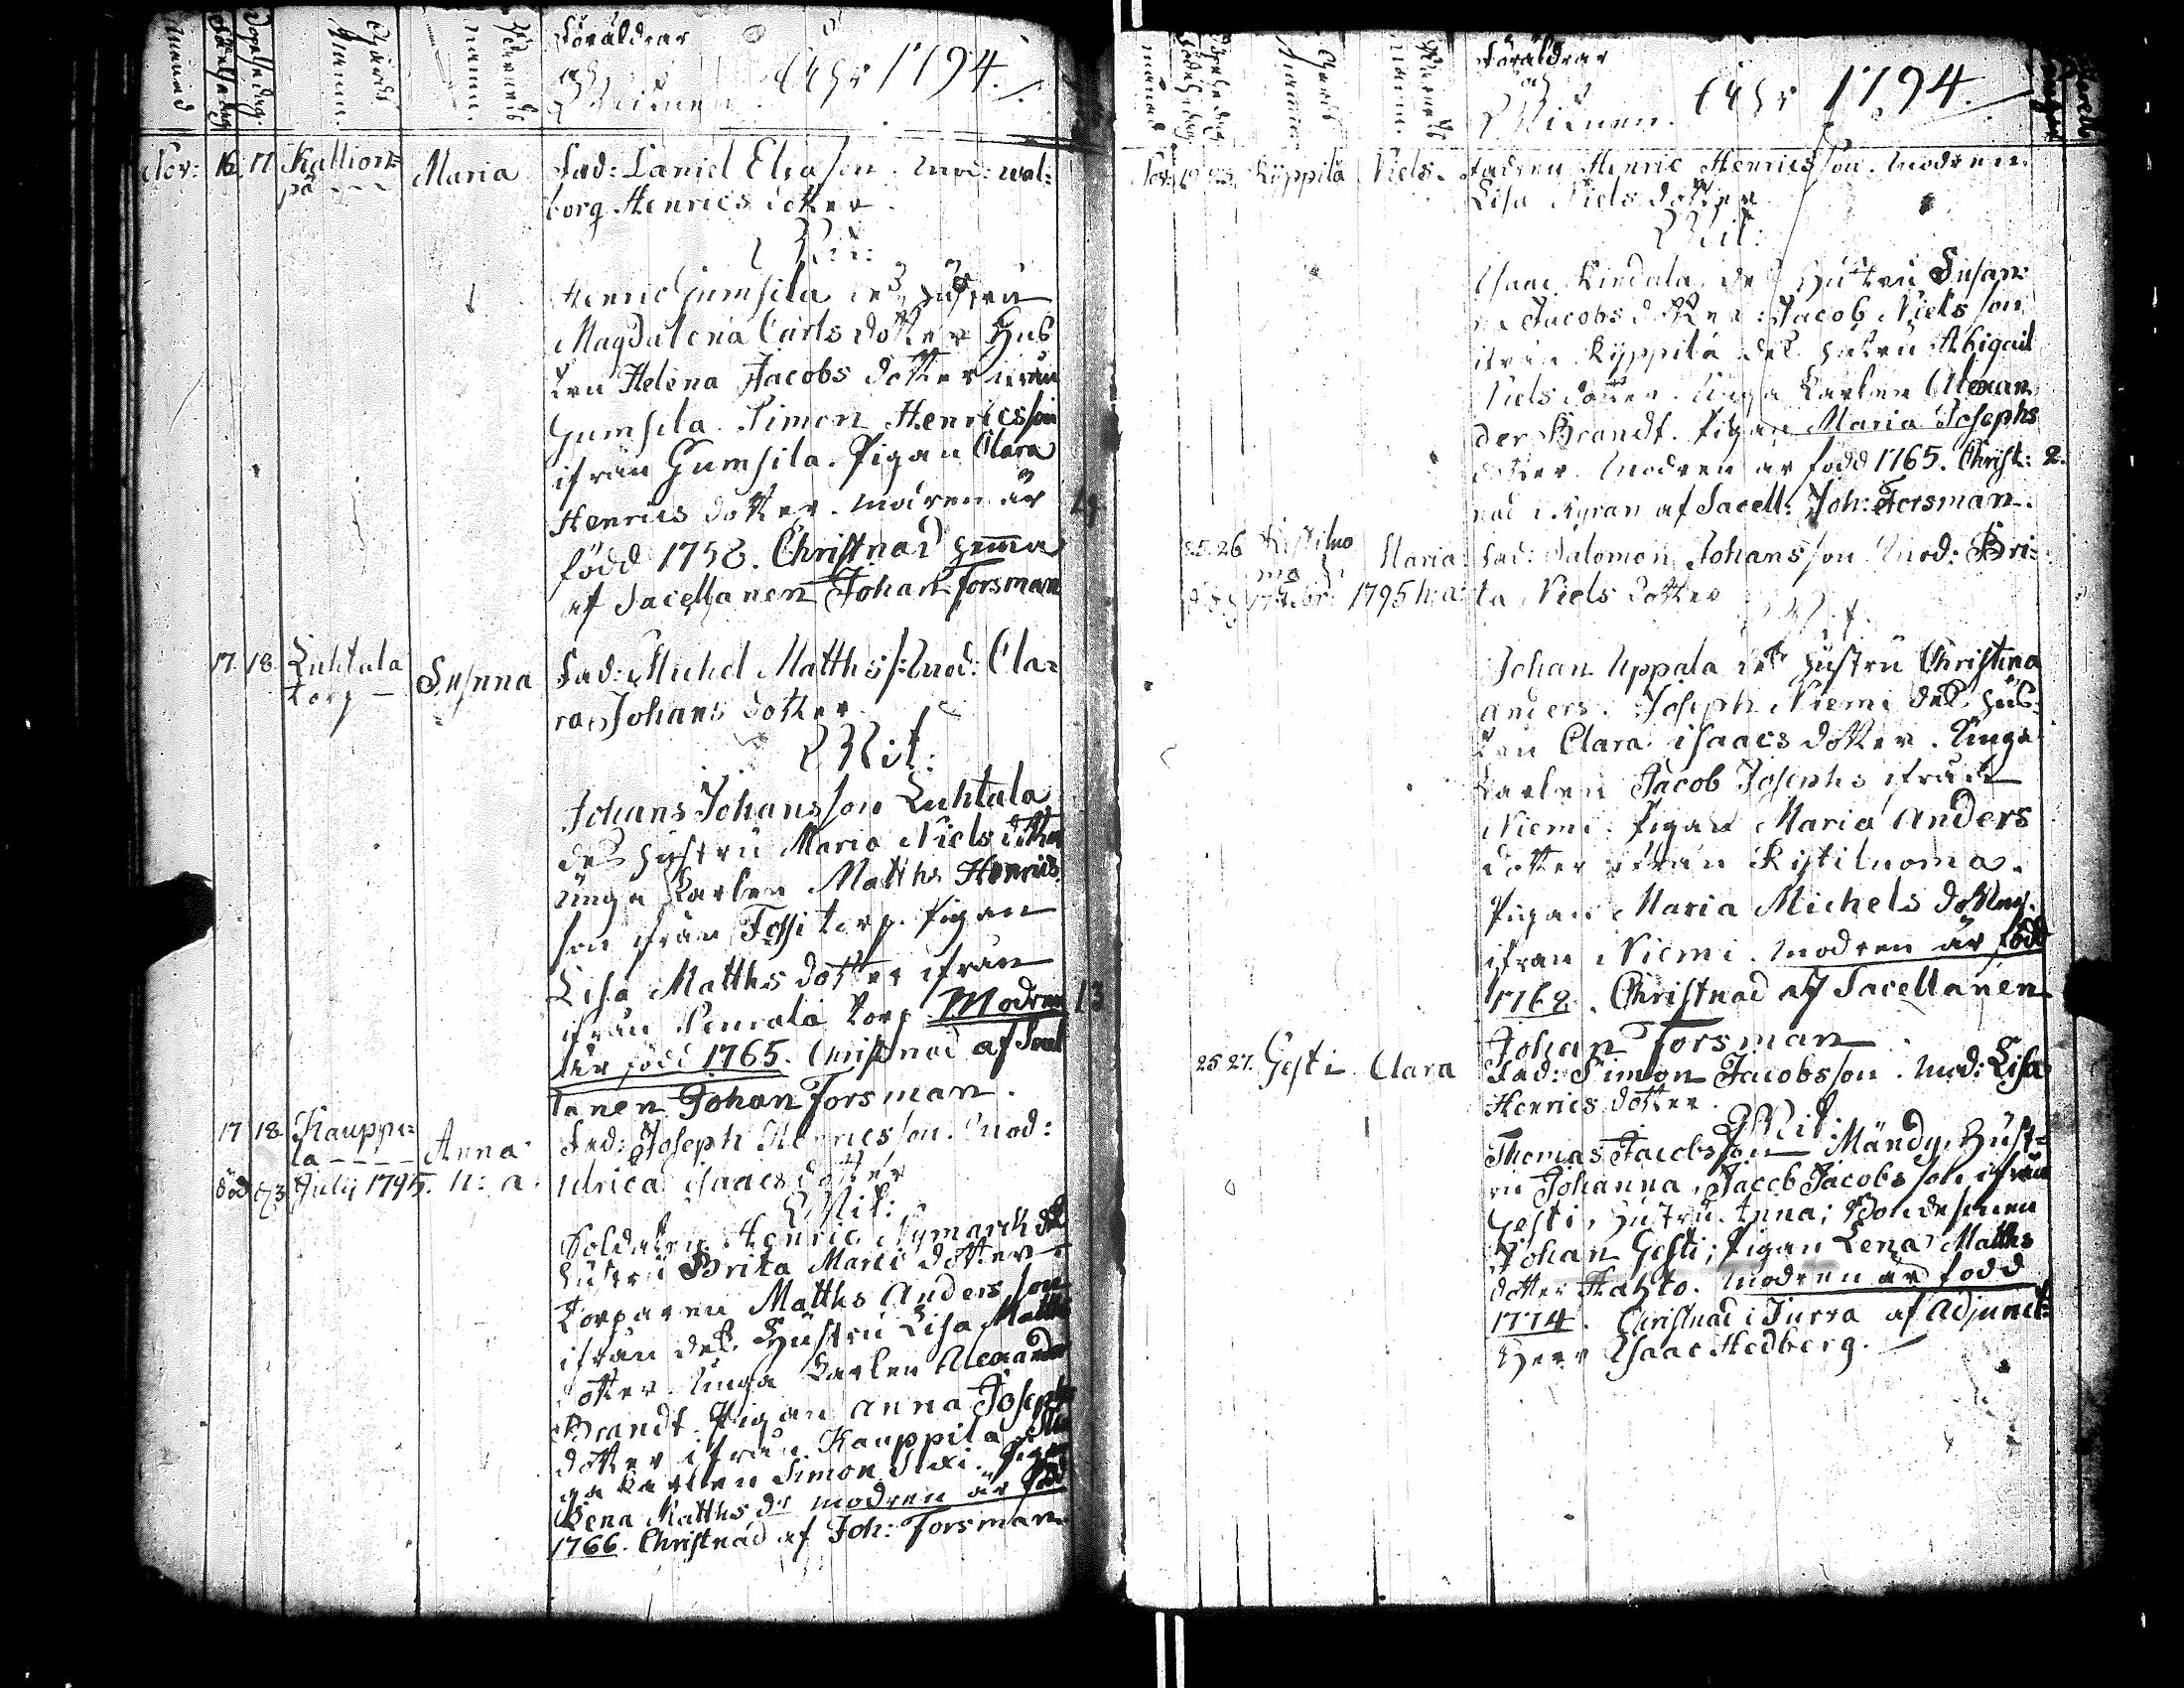 Månad Födelsedag Döpelsedag Gårds Namn. Barnets namn. Föräldrar
och
Witnen. Åhr 1794.
Nov: 16 17 Kallion=
på - - - Maria Fad: Daniel Eliasson. Mod: Wal:
borg Henrics dotter.
Wit:
Henric Gumsila des hustru
Magdalena Carls dotter Hus
tru Helena Jacobs dotter ifrån
Gumsila. Simon Henricsson
ifrån Gumsila. Pigan Clara
Henrics dotter. Modren är
född 1758. Christnad hemma
af Sacellanen Johan Forsman
17. 18. Luhtala
torp — Susnna Fad: Michel Matths s: Mod: Cla=
ra Johans dotter
Wit:
Johans Johansson Luhtala
des hustru Maria Niels dotter
Unga Karlen Matths Henrics
son ifrån Torp. Pigan
Lisa Matths dotter ifrån
torp. Modren 13
är född 1765. Christnad af Sacel
lanen Johan Forsman.
17 18 Kauppi=
la - - - - Anna Fad: Joseph Henricsson. Mod:
död d. 3 July 1795. h: a. Ulrica Isaacs dotter
Wit:
Soldaten Henric Nymarck des
hustru Brita Marci dotter
Torparen Matths Anders son
ifrån des Hustru Lisa Matths
dotter. Unga Karlen Alexander
Brandt. Pigan Anna Josephs
dotter ifrån Kauppila. Un
ga Karlen Simon. Pigan
Lena Matths dr modren är född
1766. Christnad af Joh: Forsman.
Månad Födelsedag Döpelsedag Gårds Namn Barnets namn. Föräldrar
och
Witnen. Åhr 1794.
Nov: 23. Kyppilä Niels. Fadren Henric Henricsson. Modren
Lisa Niels dotter
Wit:
Isaac des Hustru Susan=
na Jacobs dotter: Jacob Nielsson
ifrån Kyppilä des hustru Abigail
Niels dotter. Unga Karlen Alexan
der Brandt. Pigan Maria Josephs
dotter. Modren är född 1765. Christ: 2.
nad i Kyran af Sacell: Joh: Forsman.
25. 26 Kistiluo
ma Maria Fad: Salomon Johansson. Mod: Bri=
1795 h: a: ta Niels dotter
Wit.
Johan Uppala des hustru Christina
Anders. Joseph Niemi des hus
tru Clara Isaacs dotter. Unga
Karlen Jacob Josephs ifrån
Niemi. Pigan Maria Anders
dotter ifrån Kistiluoma.
Pigan Maria Michels dotter.
ifrån Niemi. Modren är född
1768. Christnad af Sacellanen
Johan Forsman
25. 27. Gesti Clara Fad: Simon Jacobsson. Mod: Lisa
Henrics dotter.
Wit:
Thomas Jacobsson Mändy. Hust=
ru Johanna, Jacob Jacobsson ifrån
Gesti, Hustru Anna; Bondesonen
Johan Gesti; Pigan Lena Matths
dotter Hahto. Modren är född
1774. Christnad i Jurra af Adjunct:
Herr Isaac Hedberg.